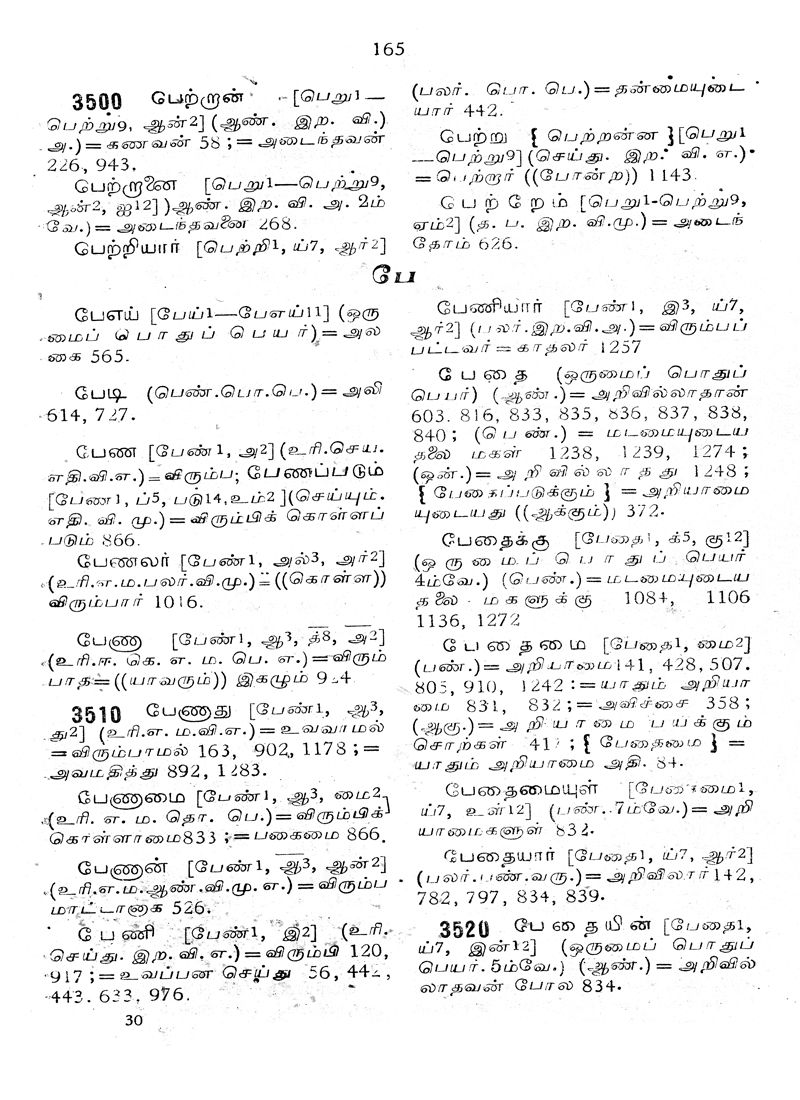 165
3500 பெற்றான் [பெறு1—
பெற்று9, ஆன்2] (ஆண். இற. வி.
அ.)=கணவன் 58 ;=அடைந்தவன்
226, 943.
பெற்றானை [பெறு1—பெற்று9,
ஆன்2, ஐ12] )ஆண். இற. வி. அ. 2ம்
வே.)=அடைந்தவனை 268.
பெற்றியார் [பெற்றி1, ய்7, ஆர்2]
(பலர். பொ. பெ.)=தன்மையுடை
யார் 442.
பெற்று { பெற்றன்ன }[பெறு1
—பெற்று9] (செய்து. இற. வி. எ.)
=பெற்றார் ((போன்ற)) 1143.
பெற்றேம் [பெறு1-பெற்று9,
ஏம்2] (த. ப. இற. வி.மு.)=அடைந்
தோம் 626.
பே
பேஎய் [பேய்1—பேஎய்11] (ஒரு
மைப் பொதுப் பெயர்)=அல
கை 565.
பேடி (பெண்.பொ.பெ.)=அலி
614, 727.
பேண [பேண்1, அ2] (உரி.செய.
எதி.வி.எ.)=விரும்ப; பேணப்படும்
[பேண1, ப்5, படு14,உம்2 ](செய்யும்.
எதி. வி. மு.)=விரும்பிக் கொள்ளப்
படும் 866.
பேணலர் [பேண்1, அல்3, அர்2]
(உரி.எ.ம.பலர்.வி.மு.)=((கொள்ள))
விரும்பார் 1016.
பேணா [பேண்1, ஆ3, த்8, அ2]
(உரி.ஈ. கெ. எ. ம. பெ. எ.)=விரும்
பாத=((யாவரும்)) இகழும் 924
3510 பேணாது [பேண்1, ஆ3,
து2] (உரி.எ. ம.வி.எ.)=உவவாமல்
=விரும்பாமல் 163, 902, 1178 ;=
அவமதித்து 892, 1283.
பேணாமை [பேண்1, ஆ3, மை2]
(உரி. எ. ம. தொ. பெ.)=விரும்பிக்
கொள்ளாமை833 ;=பகைமை 866.
பேணான் [பேண்1, ஆ3, ஆன்2]
(உரி.எ.ம.ஆண்.வி.மு. எ.)=விரும்ப
மாட்டானாக 526.
பேணி [பேண்1, இ2] (உரி.
செய்து. இற. வி. எ.)=விரும்பி 120,
917 ;=உவப்பன செய்து 56, 442,
443. 633, 976.
30
பேணியார் [பேண்1, இ3, ய்7,
ஆர்2] (பலர்.இற.வி.அ.)=விரும்பப்
பட்டவர்=காதலர் 1257
பேதை (ஒருமைப் பொதுப்
பெயர்) (ஆண்.)=அறிவில்லாதான்
603. 816, 833, 835, 836, 837, 838,
840; (பெண்.) = மடமையுடைய
தலை மகள் 1238, 1239, 1274;
(ஒன்.)=அறிவில்லாதது 1248;
{ பேதைப்படுக்கும் } =அறியாமை
யுடையது ((ஆக்கும்)) 372.
பேதைக்கு [பேதை1, க்5, கு12]
(ஒருமைப் பொதுப் பெயர்
4ம்வே.) (பெண்.)=மடமையுடைய
தலை மகளுக்கு 1084, 1106
1136, 1272
பேதைமை [பேதை1, மை2]
(பண்.)=அறியாமை141, 428, 507.
805, 910, 1242 :=யாதும் அறியா
மை 831, 832;=அவிச்சை 358;
(ஆகு.)=அறியாமை பயக்கும்
சொற்கள் 417 ; { பேதைமை } =
யாதும் அறியாமை அதி. 84.
பேதைமையுள் [பேதைமை1,
ய்7, உள்12] (பண். 7ம்வே.)=அறி
யாமைகளுள் 832.
பேதையார் [பேதை1, ய்7, ஆர்2]
(பலர்.பண்.வரு.)=அறிவிலார்142,
782, 797, 834, 839.
3520 பேதையின் [பேதை1,
ய்7, இன்12] (ஒருமைப் பொதுப்
பெயர். 5ம்வே.) (ஆண்.)=அறிவில்
லாதவன் போல 834.